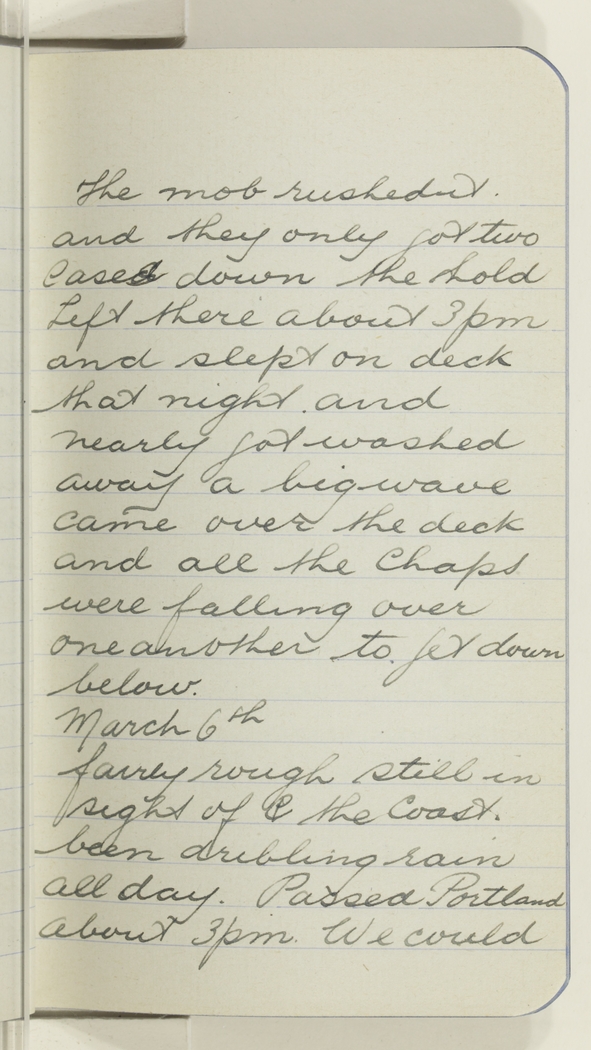 The mob rushed it.
and they only got two
Cases down the hold
Left there about 3pm
and slept on deck
that night. and
nearly got washed
away a big wave
came over the deck
and all the Chaps
were falling over
one another to get down
below.
March 6th
fairly rough still in
sight of the Coast.
been dribling rain
all day. Passed Portland
about 3pm. We could